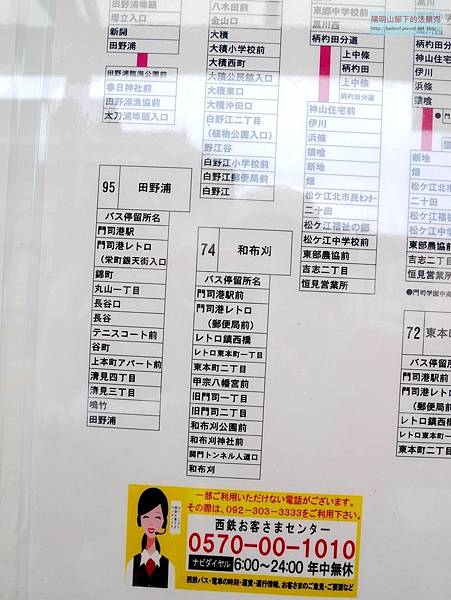 陽明山腳下的法蘭克
田野浦
埋立入口
新開
田野浦
田野浦臨海公園前
春日神社前
田野浦漁協前
太刀浦埠頭
八木田前
金山口
大積
大積小学校前
大積西町
大積公民館入口
大積東口
大積沖田口
白野江二丁目
(植物公園入口)
野江谷
白野江小学校前
白野江郵便局前
白野江
東郷中学校前
黒川西
柄杓田分道
上中條
上中條
柄杓田分道
神山住宅前
伊川
浜條
猿喰
新地
畑
松ケ江北市民センター
二十田
松ケ江福祉の郷
松ケ江中学校前
東部農協前
吉志二丁目
恒見営業所
柄杓田
神山住宅前
伊川
浜條
猿喰
新地
畑
松ケ江北
二十田
松ケ江福
松ケ江中
東部農協
吉志二丁
恒見営業
●門司学園中高
95 田野浦
バス停留所名
門司港駅
門司港レトロ
(栄町銀天街入口
錦町
丸山一丁目
長谷口
長谷
テニスコート前
谷町
上本町アパート前
清見四丁目
清見三丁目
鳴竹
田野浦
74 和布刈
バス停留所名
門司港駅前
門司港レトロ
(郵便局前)
レトロ鎮西橋
レトロ東本町一丁目
東本町二丁目
甲宗八幡宮前
旧門司一丁目
旧門司二丁目
和布刈公園前
和布刈神社前
関門トンネル人道口
和布刈
72 東本
バス停留所
門司港駅前
門司港レト
(郵便局
レトロ鎮西橋
レトロ東本町一
東本町二丁
一部ご利用いただけない電話がございます。
その際は、092-303-3333をご利用下さい。
西鉄お客さまセンター
0570-00-1010
ナビダイヤル 6:00~24:00 年中無休
西鉄バス・電車の時刻・運賃・運行情報、お客さまのご意見・ご要望など